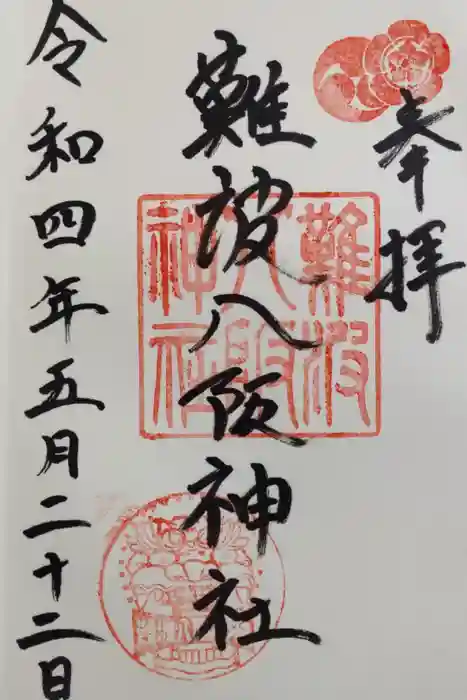 奉拝
難波八阪神社
令和四年五月二十二日
難波八阪神社